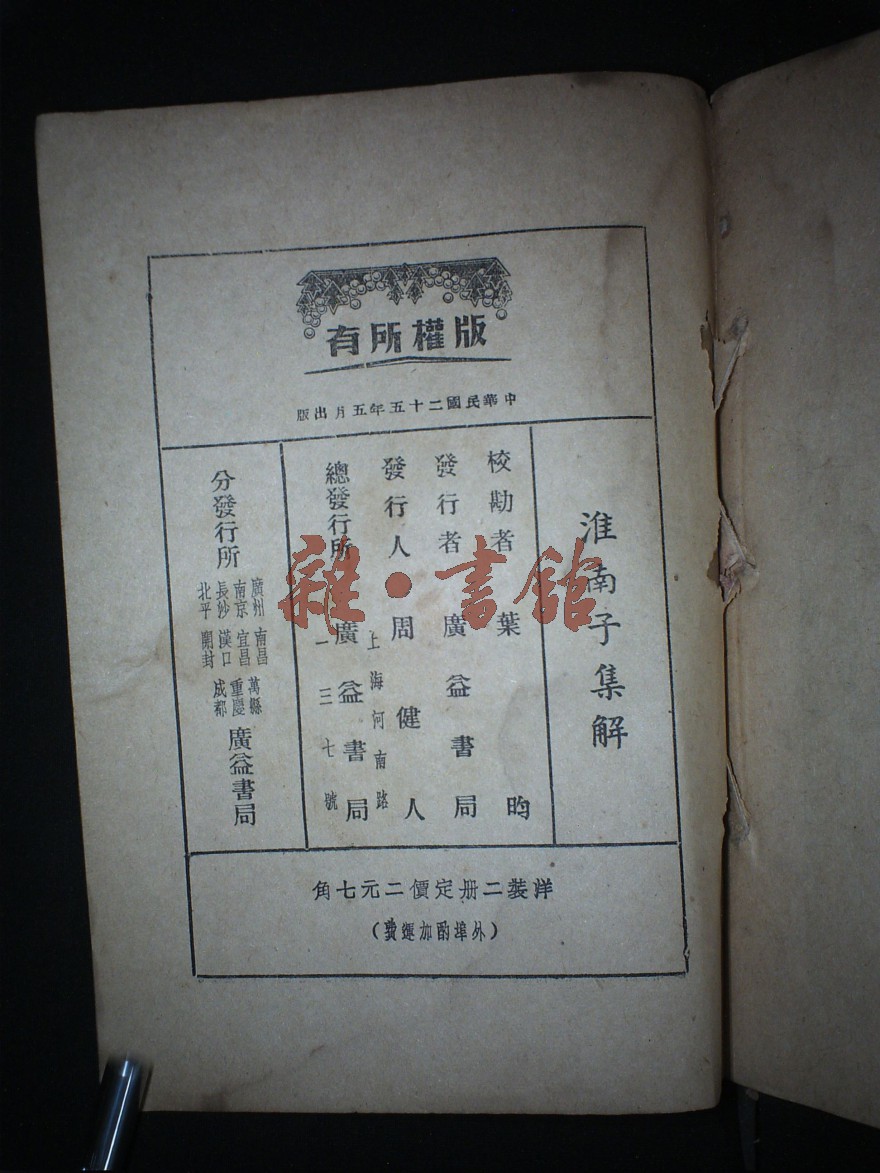 版權所有
中華民國二十五年五月出版
淮南子集解
校勘者 葉昀
發行者 廣益書局
發行人 周健人
上海河南路
總發行所 廣益書局
一三七號
分發行所
廣州 南昌 萬縣
南京 宜昌 重慶
長沙 漢口 成都
北平 開封
廣益書局
洋裝二册定價二元七角
(外埠酌加運費)
雜·書館